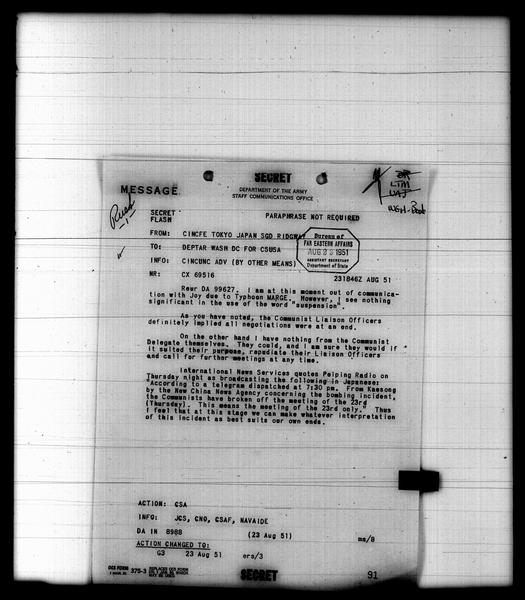 SECRET
DEPARTMENT OF THE ARMY
STAFF COMMUNICATIONS OFFICE
MESSAGE
Rush
-1-
LTM
WGH-Book
SECRET
FLASH
PARAPHRASE NOT REQUIRED
FROM: CINCFE TOKYO JAPAN SGD RIDGWAY
TO: DEPTAR WASH DC FOR CSUSA
INFO: CINCUNC ADV (BY OTHER MEANS)
Bureau of
FAR EASTERN AFFAIRS
AUG 23 1951
ASSISTANT SECRETARY
Department of State
NR: CX 69516
231846Z AUG 51
Rewr DA 99627. I am at this moment out of communica-
tion with Joy due to Typhoon MARGE. However, I see nothing
significant in the use of the word "suspension".
As you have noted, the Communist Liaison Officers
definitely implied all negotiations were at an end.
On the other hand I have nothing from the Communist
Delegate themselves. They could, and I am sure they would if
it suited their purpose, repudiate their Liaison Officers
and call for further meetings at any time.
International News Services quotes Peiping Radio on
Thursday night as broadcasting the following in Japanese:
"According to a telegram dispatched at 7:30 pm. From Kaesong
by the New China News Agency concerning the bombing incident,
the Communists have broken off the meeting of the 23rd
(Thursday). This means the meeting of the 23rd only." Thus
I feel that at this stage we can make whatever interpretation
of this incident as best suits our own ends.
ACTION: CSA
INFO: JCS, CNO, CSAF, NAVAIDE
DA IN 8988 (23 Aug 51) ms/8
ACTION CHANGED TO:
G3 23 Aug 51 ers/3
OCS FORM 375-3
REPLACES OCS FORM
MAY BE USED
SECRET
91